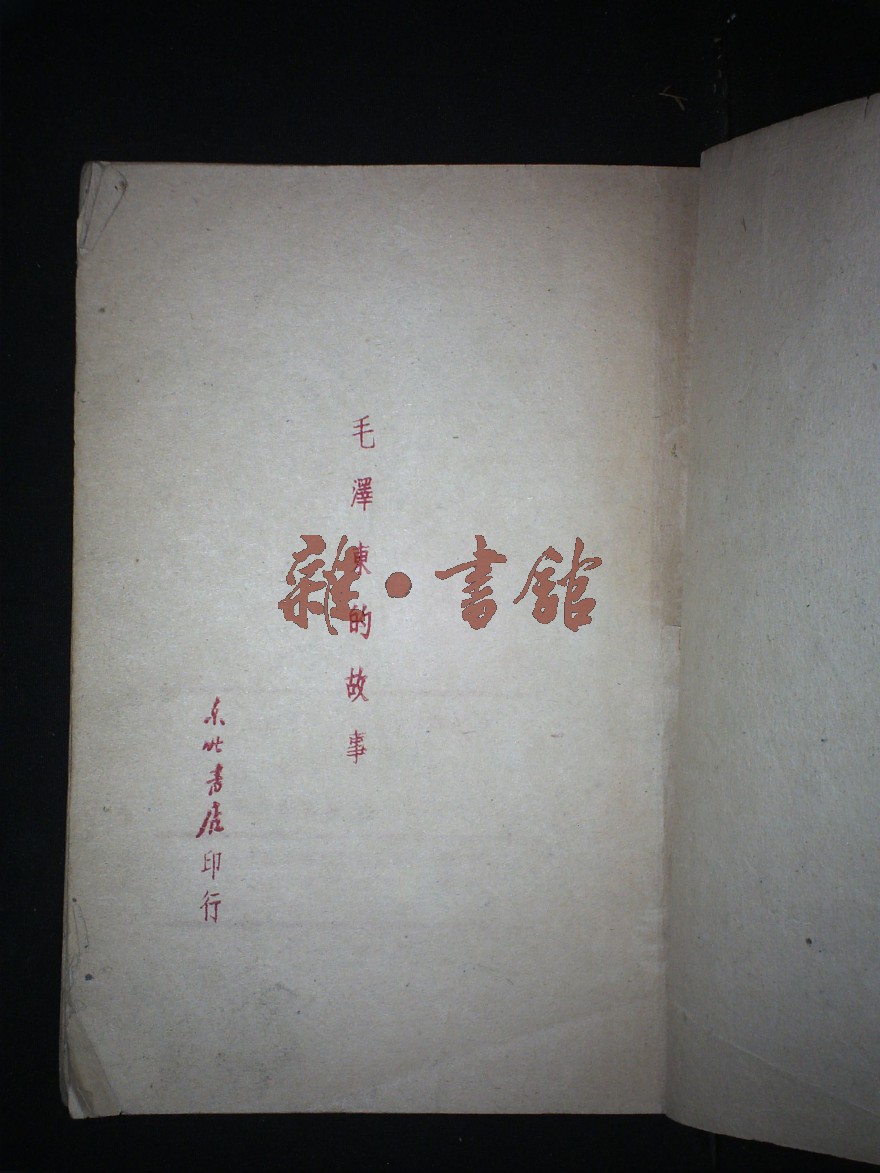 毛澤東的故事
东北書店印行
雜·書館